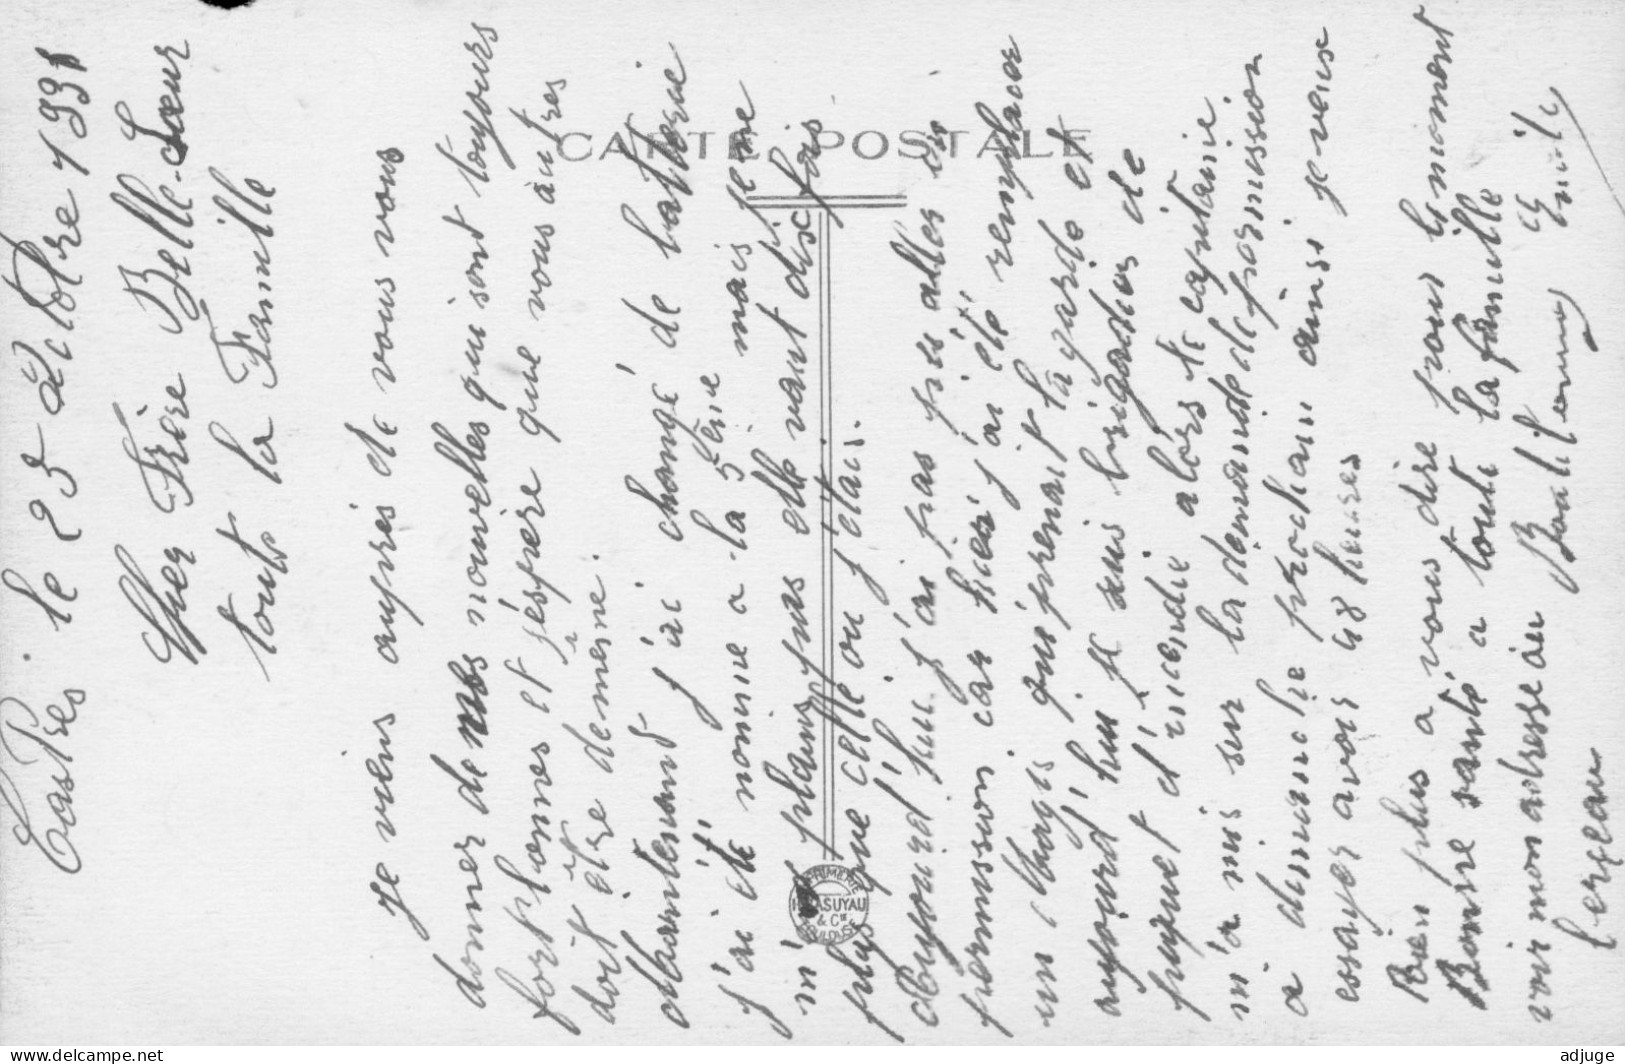 Castres. le 25 Octobre 1931
Cher Frère Belle-Sœur
touts la Famille
Je viens auprès de vous vous
donner de mes nouvelles qui sont toujours
fort bonnes et j'éspère que vous autres
doit être de même.
Maintenant j'ai changé de batterie
j'ai été nomme a la 5ème mais je ne
m' plains pas elle vaut dix fois
plus que celle ou j'étais.
aujourd'hui j'ai pas pus aller en
permission car hier j'ai été remplacer
un Margis qui prenait la garde et
aujourd'hui je suis brigadier de
piquet d'incendie alors le capitaine
m'a mis sur la demande de permission
a dimanche prochain ainsi je veux
essayer avoir 48 heures
Rien plus a vous dire pour le moment
Bonne santé a toute la famille
voir mon adresse au
Emile
CARTE POSTALE
IMPRIMERIE
LASUYAU
& Cie
TOULOUSE
www.delcampe.net
adjuge